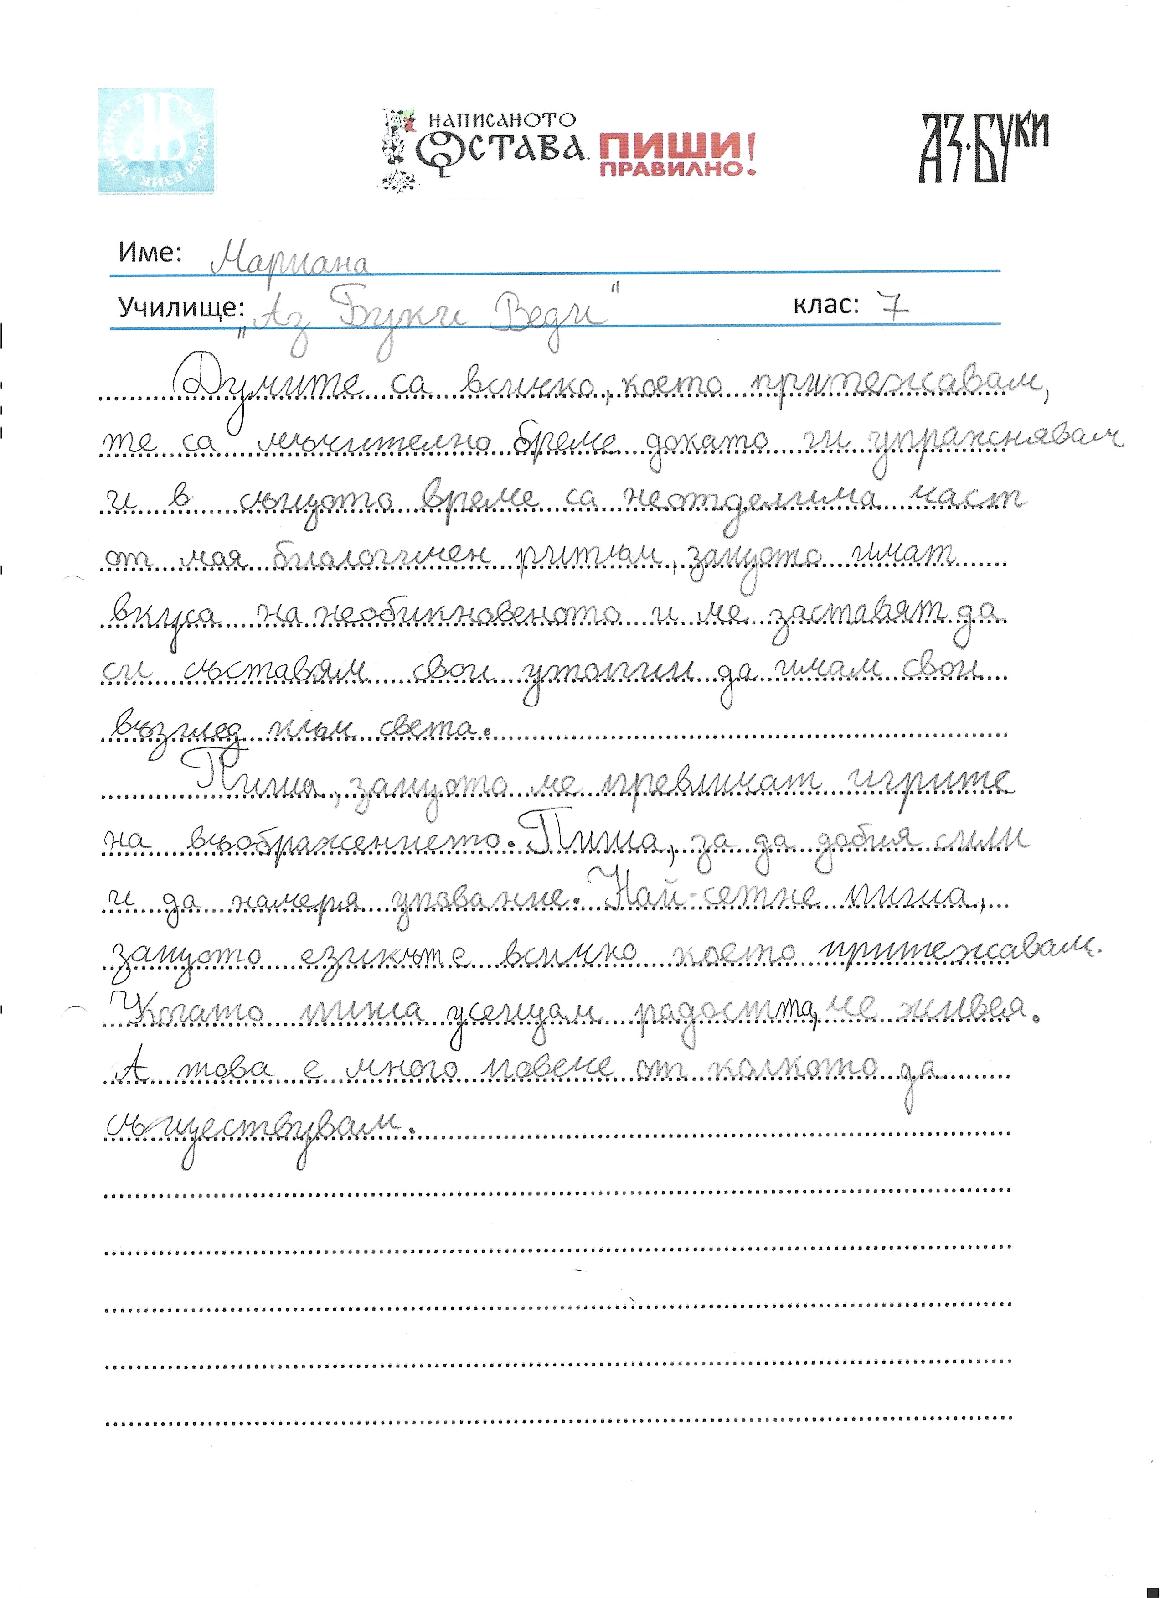 НАПИСАНОТО
ОСТАВА. ПИШИ
ПРАВИЛНО!
АЗ·БУКИ
Име: Мариана
Училище: „Аз Буки Веди“ клас: 7
Думите са всичко, което притежавам,
те са мъчително бреме докато ги упражнявам
и в същото време са неотделима част
от моя биологичен ритъм, защото имат
вкуса на необикновеното и ме заставят да
си съставям свои утопии да имам свои
възглед към света.
Пиша, защото ме превличат игрите
на въображението. Пиша, за да добия сили
и да намеря упование. Най-сетне пиша,
защото езикът е всичко което притежавам.
Когато пиша усещам радостта, че живея.
А това е много повече от колкото да
съществувам.